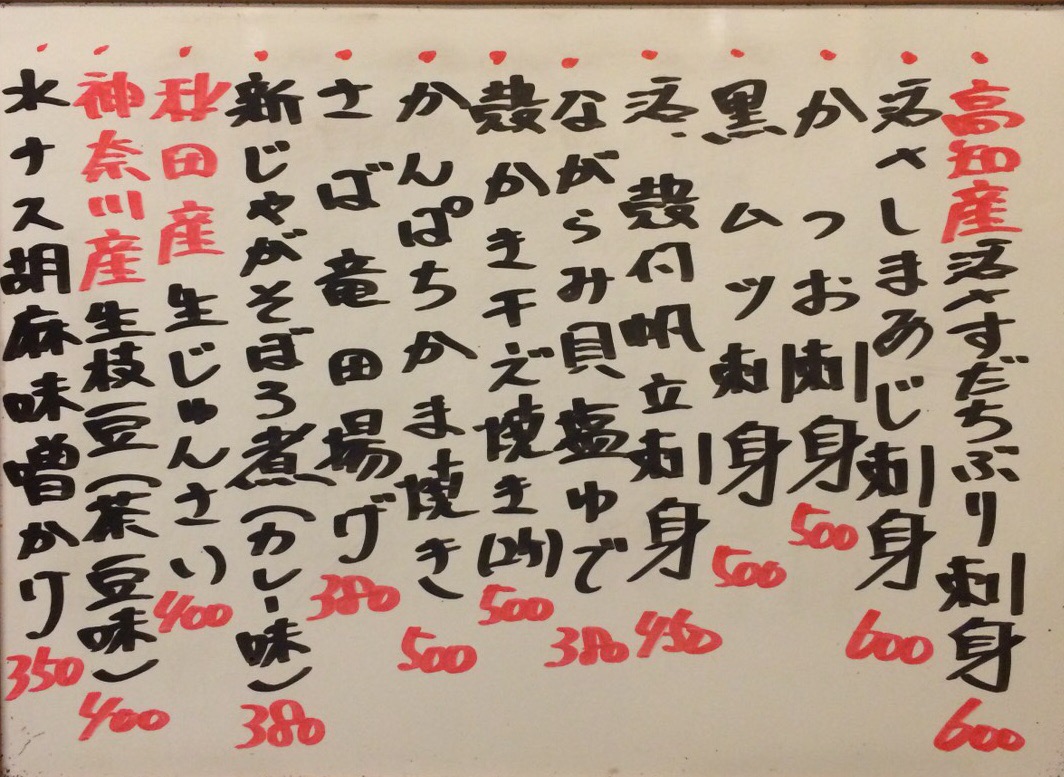 高知産活〆すだちぶり刺身 600
活〆しまあじ刺身 600
かつお刺身 500
黒ムツ刺身 500
活、殻付帆立刺身 450
ながらみ貝塩ゆで 380
殻かきチーズ焼き(2ケ) 500
かんぱちかま焼き 500
さば竜田揚げ 380
新じゃがそぼろ煮(カレー味) 380
秋田産生じゅんさい 400
神奈川産生枝豆(茶豆味) 400
水ナス胡麻味噌かけ 350